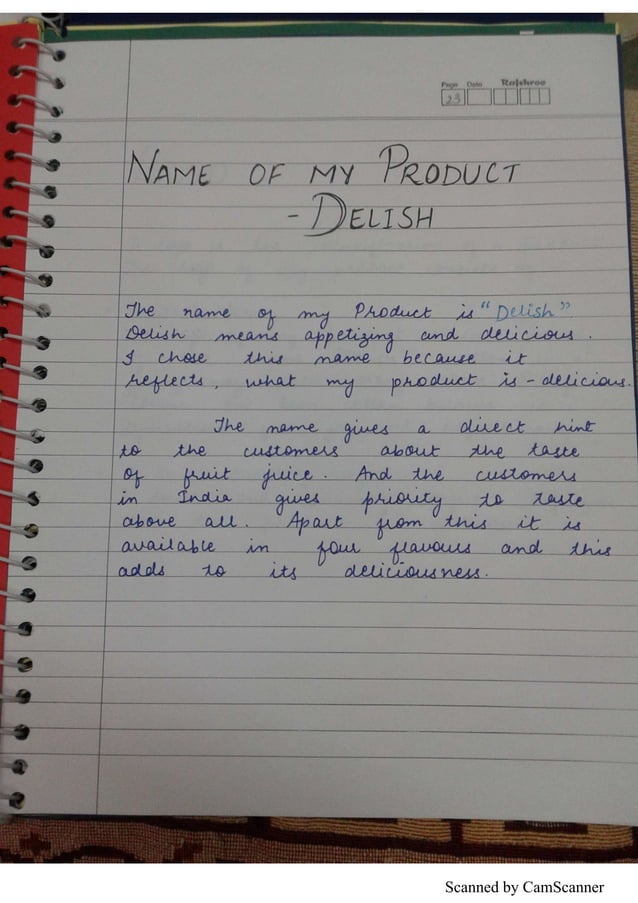 Page Date Rajshree
23
NAME OF MY PRODUCT
- DELISH
The name of my Product is "Delish"
Delish means appetizing and delicious.
I chose this name because it
reflects, what my product is - delicious.
The name gives a direct hint
to the customers about the taste
of fruit juice. And the customers
in India gives priority to taste
above all. Apart from this it is
available in four flavours and this
adds to its deliciousness.
Scanned by CamScanner